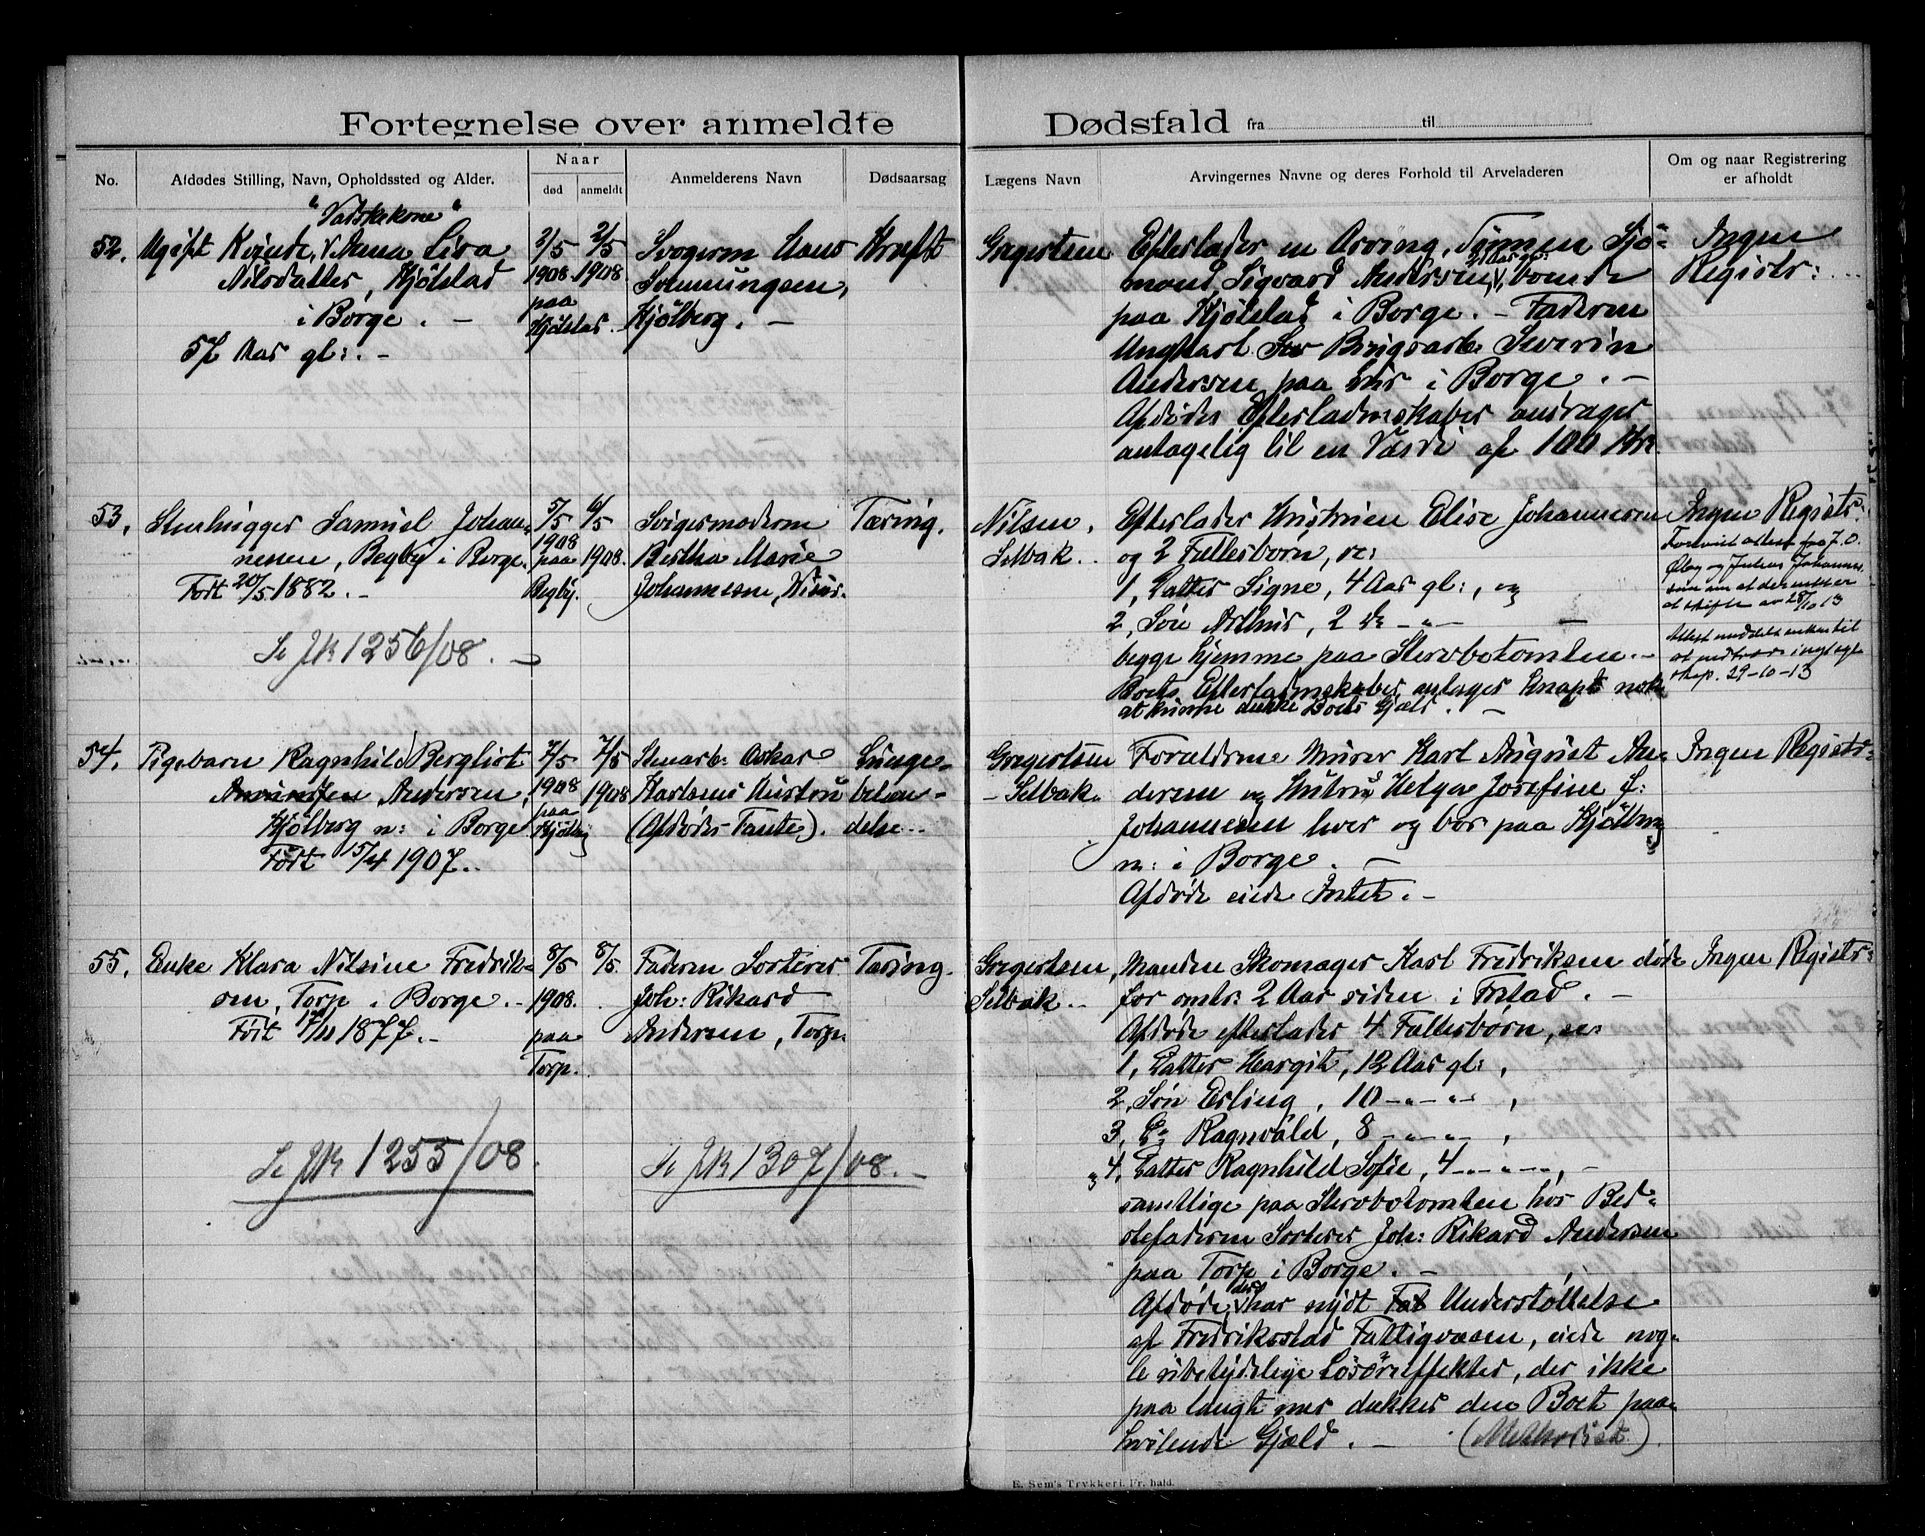 Fortegnelse over anmeldte Dødsfald fra til
No.
Afdødes Stilling, Navn, Opholdssted og Alder.
Naar
død
anmeldt
Anmelderens Navn
Dødsaarsag
Lægens Navn
Arvingernes Navne og deres Forhold til Arveladeren
Om og naar Registrering
er afholdt
"Vadskekone"
52. Ugift Kvinde, Anna Lisa
Nilsdatter, Kjølstad
i Borge. -
57 Aar gl:. -
2/5
1908
paa
Kjølstad.
2/5
1908
Svogeren Hans
Kjølberg. -
Kræft
Gregertsen
Efterlader en Arving, Sønnen Sjø-
mand, Sigvard Andersen, boende
paa Kjølstad i Borge. - Faderen
Ungkarl Brugsarb. Severin
Andersen paa i Borge. -
Afdødes Efterladenskaber andrager
antagelig til en Værdi af 100 Kr.
Ingen
Registr:
53. Stenhugger Samuel Johan-
nesen, Begby i Borge.
Født 20/5 1882. -
Se JK 1256/08. -
5/5
1908
paa
Begby.
6/5
1908.
Svigermoderen
Bertha Marie
Johannesen,
Tæring.
Nilsen,
Selbak.
Efterlader Hustruen Elise Johannesen
og 2 Fællesbørn, nl:
1, Datter Signe, 4 Aar gl:, og
2, Søn Arthur, 2 do -"- -
begge hjemme paa Stervbotomten. -
Boets Efterladenskaber antages knapt nok
at kunne dække Boets Gjæld. -
Ingen Registr:
Olaf og Julius Johannes-
sen om at der intet er
at skifte av 28/10 13
29-10-13
54. Pigebarn Ragnhild Bergliot
Andersen,
Kjølberg n: i Borge
Født 5/4 1907.
7/5
1908
paa
Kjølbg
7/5
1908
Stenarb. Oskar
Karlsens Hustru
(Afdødes Tante).
Lunge-
betæn-
delse.
Gregertsen
- Selbak.
Forældrene Murer Karl August An-
dersen og Hustru Helga Josefine f:
Johannesen lever og bor paa Kjølberg
n: i Borge. -
Afdøde eiede Intet. -
Ingen Registr:
55. Enke Klara Nilsine Fredrik-
sen, Torp i Borge. -
Født 17/11 1877. -
Se JK 1255/08.
8/5
1908.
paa
Torp.
8/5.
Faderen Sorterer
Joh: Rikard
Andersen, Torp.
Se JK 1307/08. -
Tæring.
Gregertsen,
Selbak. -
Manden Skomager Karl Fredriksen døde
for omtr: 2 Aar siden i Frstad. -
Afdøde efterlader 4 Fællesbørn, nl:
1, Datter Margit, 12 Aar gl:,
2, Søn Erling, 10 -"- -"-,
3, Do Ragnvald, 8 -"- -"-,
og 4, Datter Ragnhild Sofie, 4 -"- -"-, -
samtlige paa Stervbotomten hos Bed-
stefaderen Sorterer Joh: Rikard Andersen
paa Torp i Borge. -
Afdøde, der har nydt Understøttelse
af Fredriksstad Fattigvæsen, eiede nog-
le ubetydelige Løsøreeffekter, der ikke
paa langt nær dækker den Boet paa-
hvilende Gjæld. - (Methodist).
Ingen Registr:
E. Sem's Trykkeri. Fr. hald.